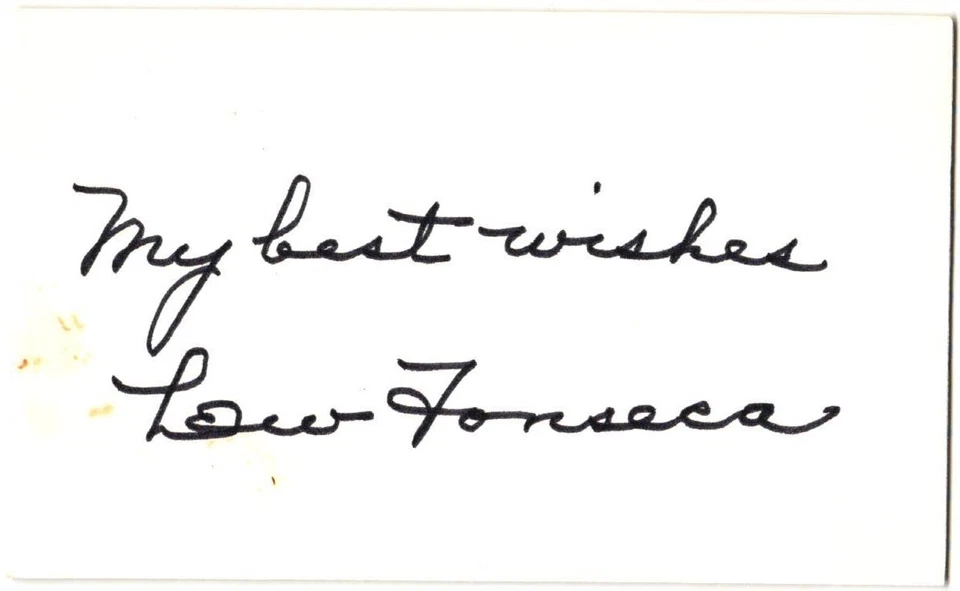 My best wishes
Lew Fonseca